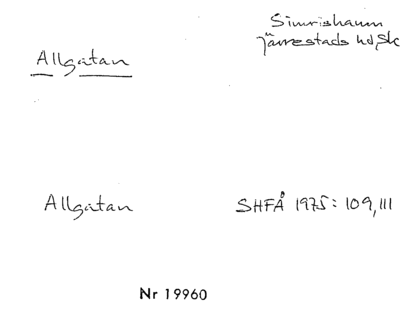 Simrishamn
Järrestads hd, Sk
Allgatan
Allgatan
SHFÅ 1975: 109, 111
Nr 19960